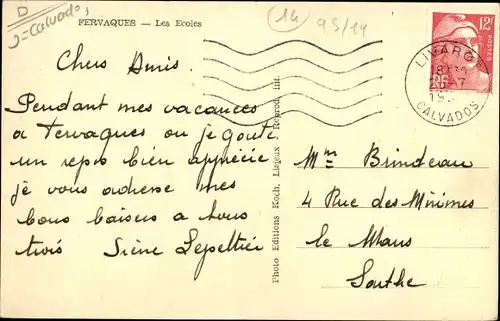 D
J=Calvados,
FERVAQUES — Les Ecoles
(14
95/19
12F
POSTES
RF
LIVAROT
18H30
-7
195
CALVADOS
Chers Amis.
Pendant mes vacances
a Fervaques ou je goute
un repos bien apprécie
je vous adresse mes
bons baisers a tous
trois Irène Lepeltier
Photo Editions Koch, Lizieux / Reprod. int.
Mme Brindeau
4 Rue des Minimes
le Mans
Sarthe